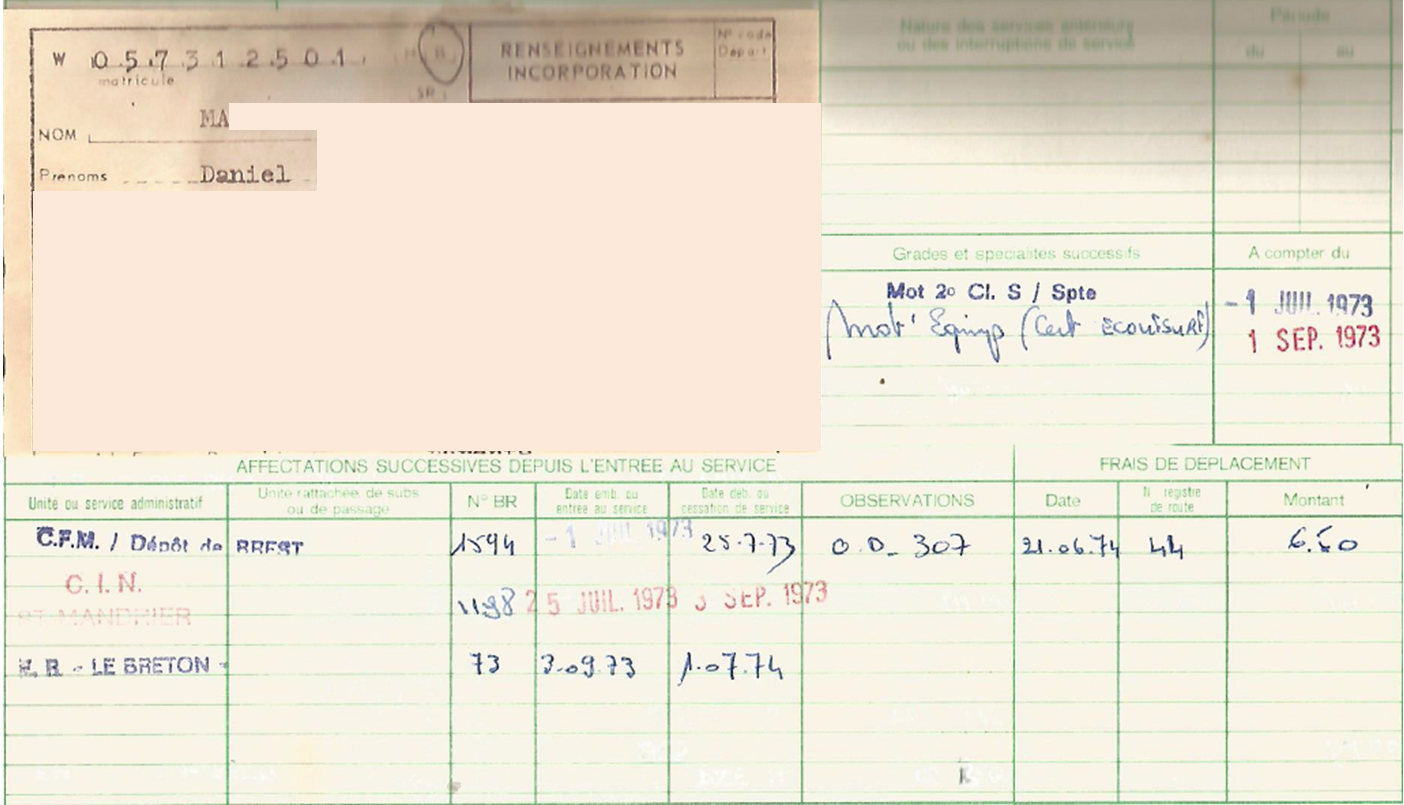 W 0 5 7 3 1 2 5 0 1 B
matricule
SR
RENSEIGNEMENTS
INCORPORATION
N° code
Depart
NOM MA
Prénoms Daniel
Nature des services antérieurs
ou des interruptions de service
Période
du au
Grades et specialites successifs
A compter du
Mot 2º Cl. S / Spte -1 JUIL. 1973
Mot' Equip (Cert ECOUTSURF) 1 SEP. 1973
AFFECTATIONS SUCCESSIVES DEPUIS L'ENTREE AU SERVICE
FRAIS DE DEPLACEMENT
Unité ou service administratif
Unite rattachee de subs.
ou de passage
N° BR
Date emb. ou
entrée au service
Date deb. ou
cessation de service
OBSERVATIONS
Date
N registre
de route
Montant
C.F.M. / Dépôt de BREST 1594 -1 JUIL 1973 25.7.73 O.D_ 307 21.06.74 44 6.50
C. I. N.
ST MANDRIER 1198 25 JUIL. 1973 3 SEP. 1973
E. R. - LE BRETON - 73 3.09.73 1.07.74